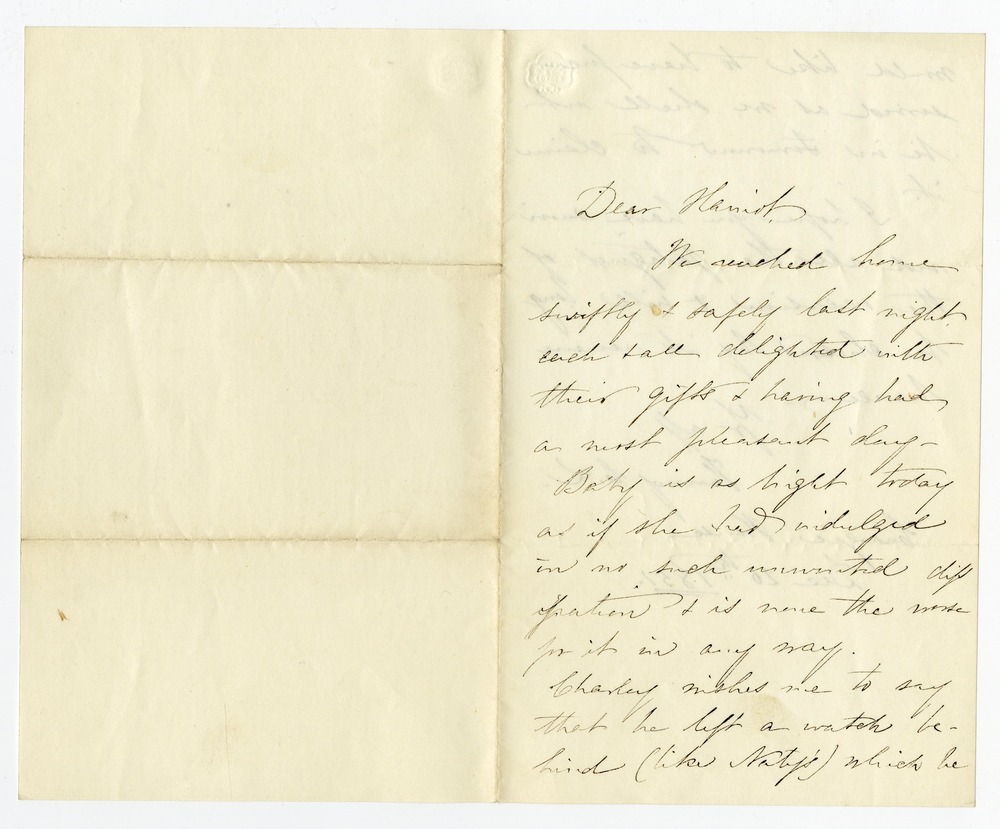 Dear Harriot,
We reached home
swiftly & safely last night,
each & all delighted with
their gifts & having had
a most pleasant day -
Baby is as bright today
as if she had indulged
in no such unwonted diss
ipation & is none the worse
for it in any way.
Charley wishes me to say
that he left a watch be-
hind (like Naty's) which he